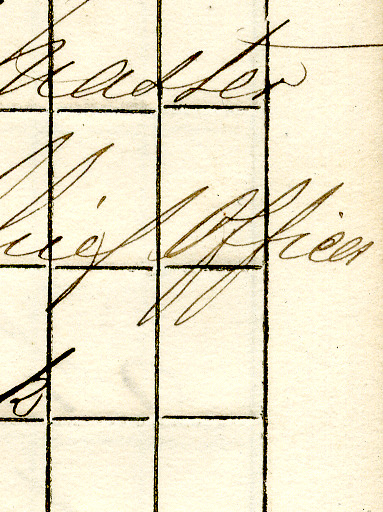 Master
Chief Officer